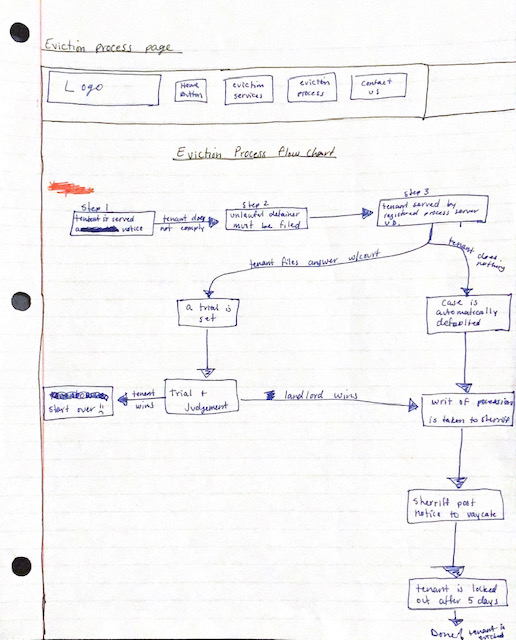 Eviction process page
Logo
Home
Button
eviction
services
eviction
process
Contact
us
Eviction Process flow chart
Step 1
tenent is served
notice
tenant does
not comply
Step 2
unlawful detainer
must be filed
Step 3
tenant served by
registered process server
U.D.
tenant files answer w/court
tenant
does
nothing
a trial is
set
case is
automatically
defaulted
start over !!
tenant
wins
Trial +
Judgement
landlord wins
writ of possession
is taken to sherriff
Sherriff post
notice to vaycate
tenant is locked
out after 5 days
Done! tenant is
evicted